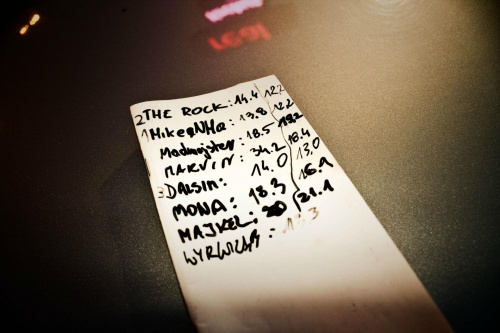 2 THE ROCK: 14.4 12.7
1 MikeNHa: 13.8 12.2
Madmajster: 18.5
MARVIN: 34.2 18.4
3 DALSIM: 14.0 13.0
MONA: 18.3 16.1
MAJKEL: 20 21.1
WYRWICHA: